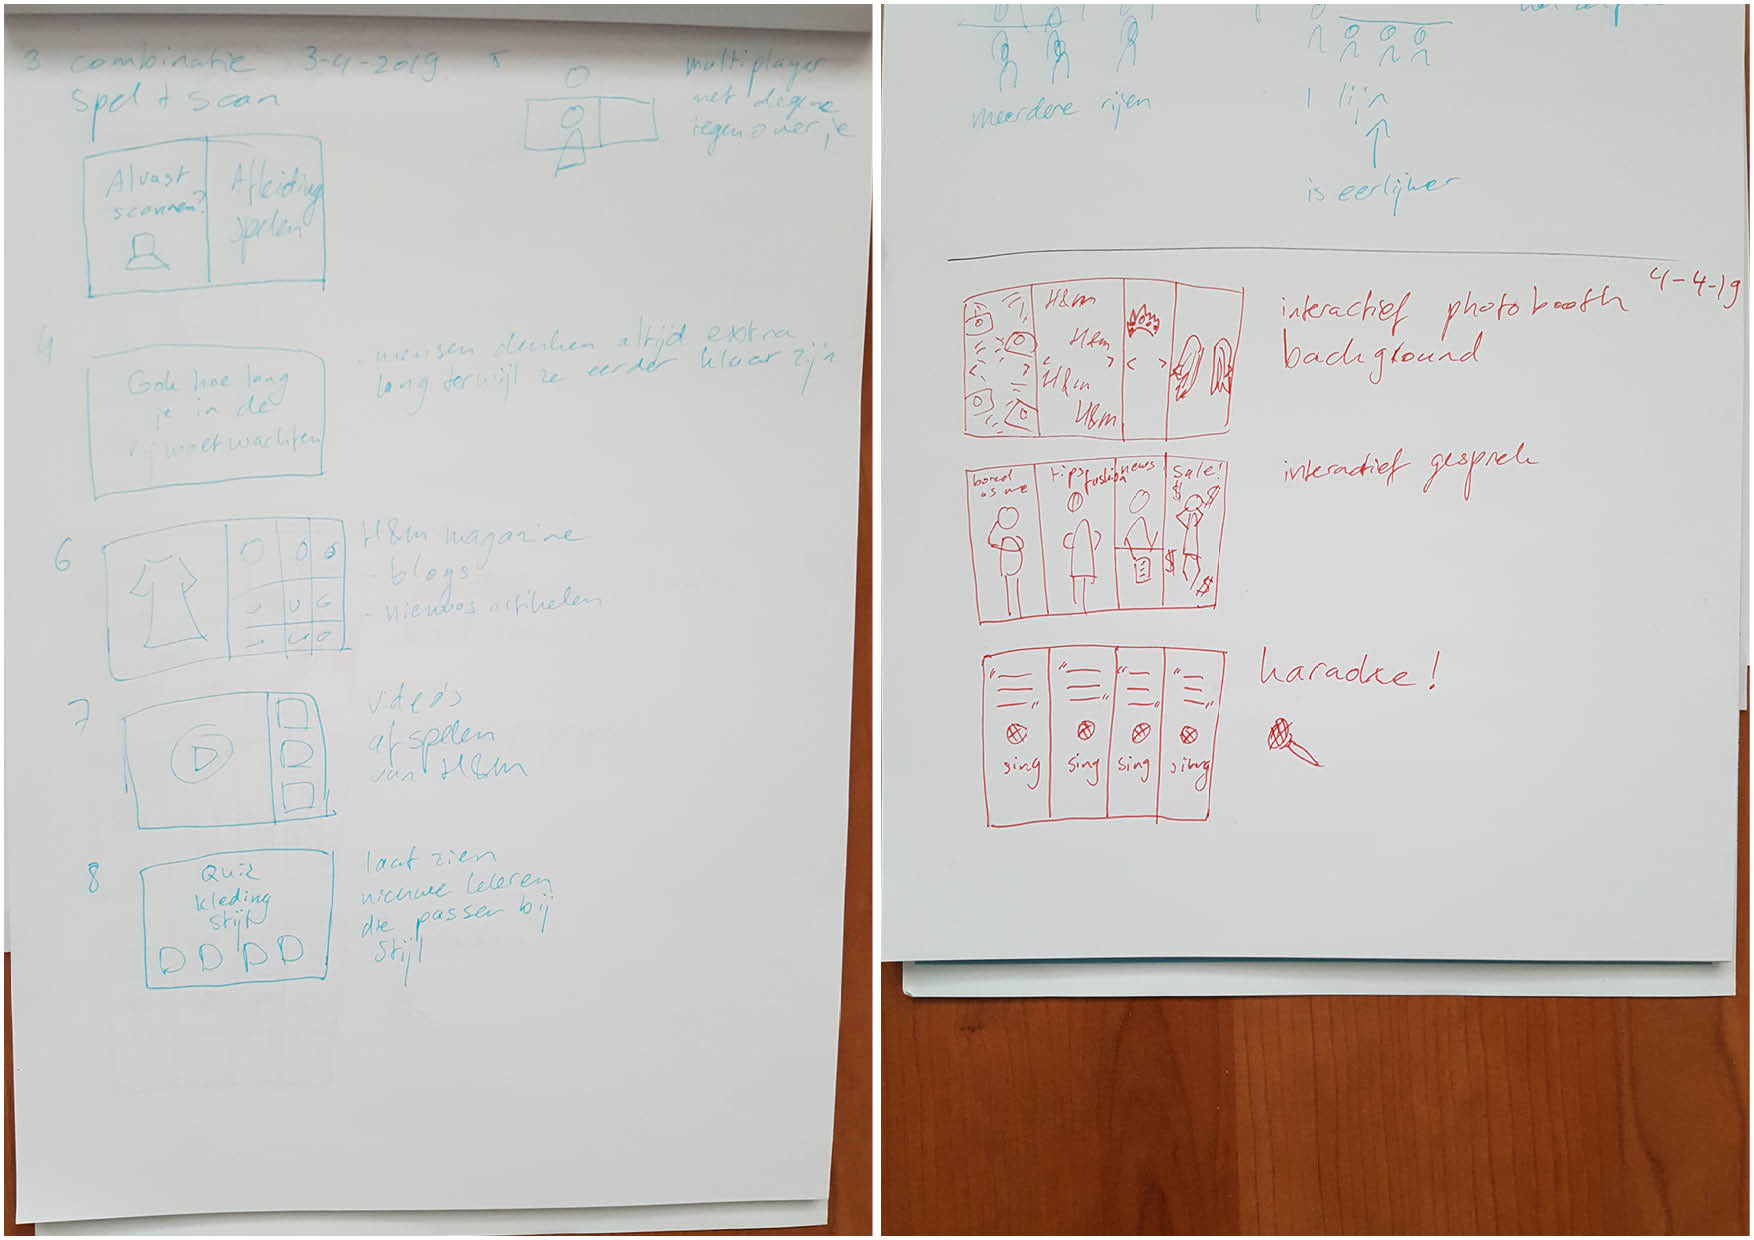 3 combinatie 3-4-2019
spel + scan
Alvast
scannen?
Afleiding
spelen
5
multiplayer
met degene
tegenover je
4
Gok hoe lang
je in de
rij moet wachten
- mensen denken altijd extra
lang terwijl ze eerder klaar zijn
6
H&m magazine
- blogs
- nieuws artikelen
7
video's
afspelen
van H&m
8
Quiz
kleding
stijl
laat zien
nieuwe kleren
die passen bij
stijl
meerdere rijen
1 lijn
is eerlijker
4-4-19
H&m
H&m
H&m
H&m
interactief photobooth
background
bored
as me
tips
fashion
news
sale!
$
$
$
interactief gesprek
"
"
sing
"
"
sing
"
"
sing
"
"
sing
karaoke!